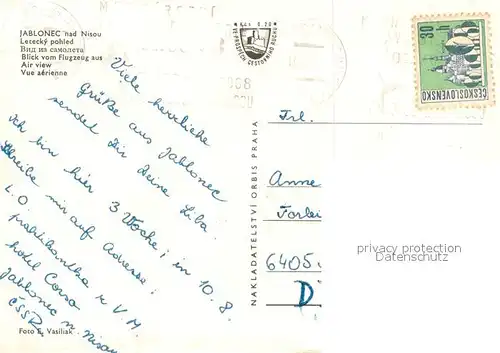 JABLONEC nad Nisou
Letecký pohled
Вид из самолета
Blick vom Flugzeug aus
Air view
Vue aérienne
Kčs 0,20
VE PROSPĚCH CESTOVNÍHO RUCHU
30 h
ČESKOSLOVENSKO
Viele herrliche
Grüße aus Jablonec
sendet Dir Deine Liba.
Ich bin hier 3 Woche: in 10.8.
Schreibe mir auf Adresse:
L. O praktikantka k V M.
hotel Corso
Jablonec n. Nisou
ČSSR
Foto E. Vasiliak
NAKLADATELSTVÍ ORBIS PRAHA
Frl.
Anne
6405.
D
privacy protection
Datenschutz